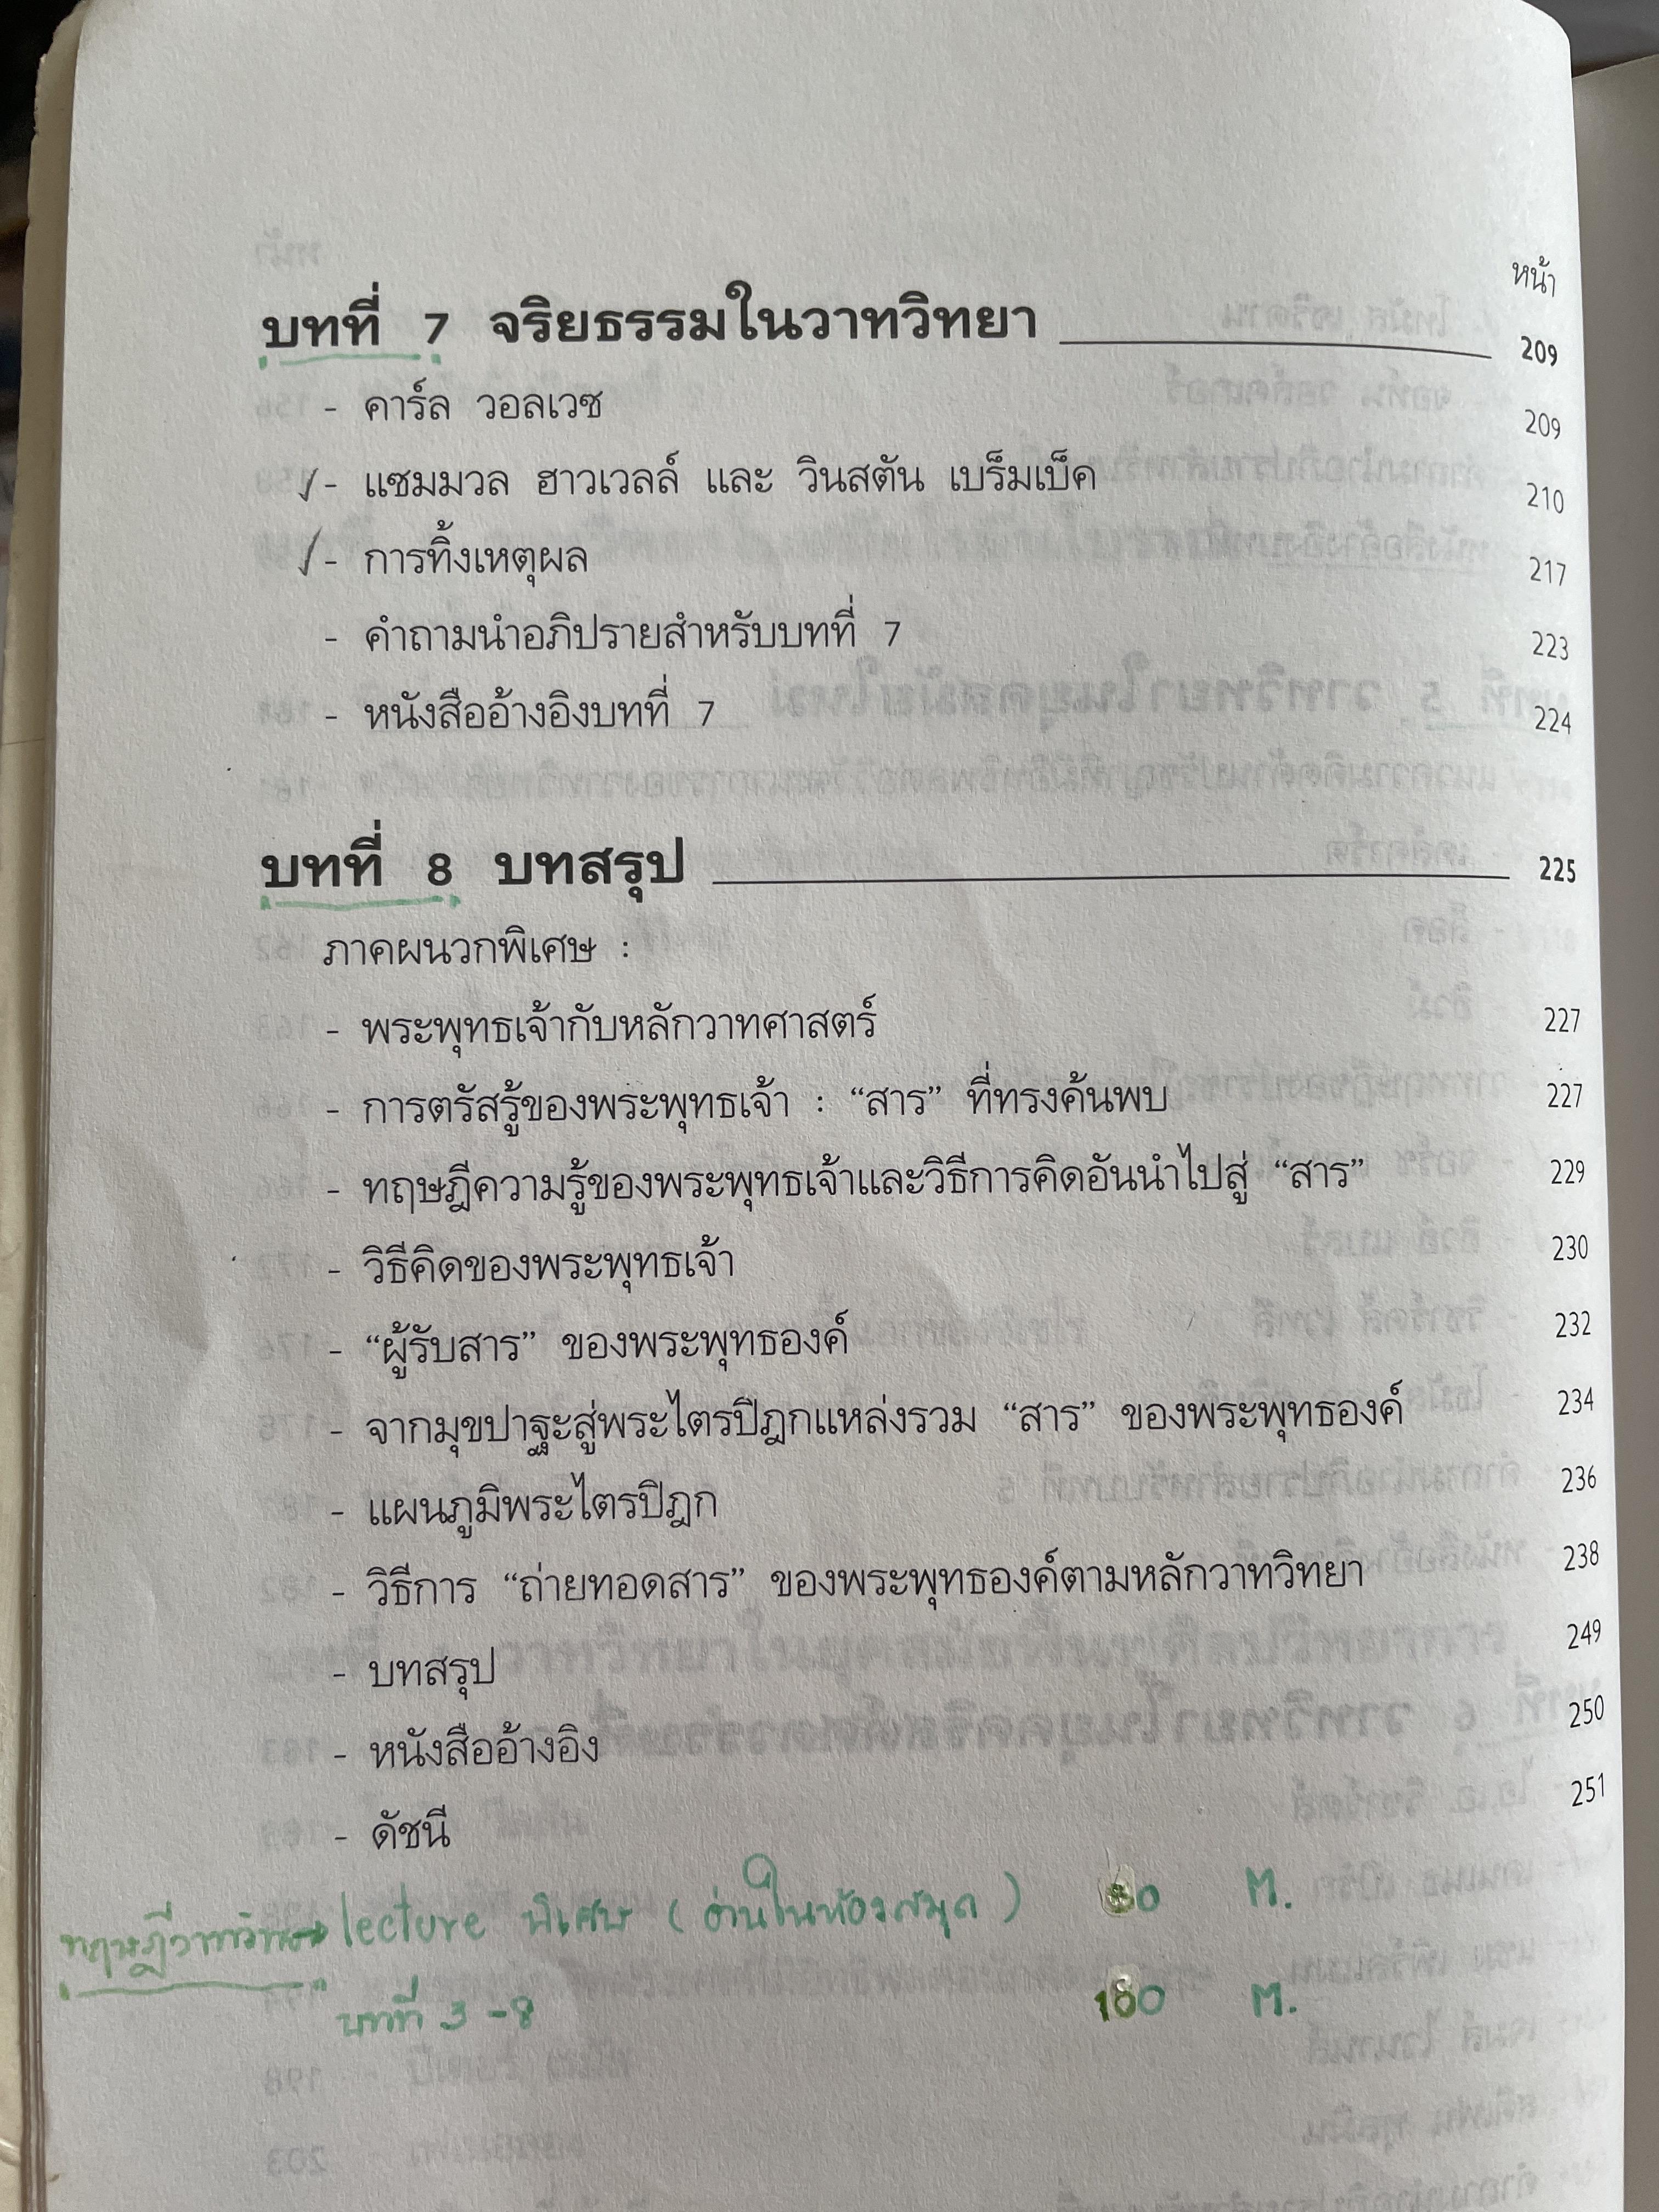 หน้า
บทที่ 7 จริยธรรมในวาทวิทยา 209
- คาร์ล วอลเวซ 209
- แซมมวล ฮาวเวลล์ และ วินสตัน เบร็มเบ็ค 210
- การทิ้งเหตุผล 217
- คำถามนำอภิปรายสำหรับบทที่ 7 223
- หนังสืออ้างอิงบทที่ 7 224
บทที่ 8 บทสรุป 225
ภาคผนวกพิเศษ :
- พระพุทธเจ้ากับหลักวาทศาสตร์ 227
- การตรัสรู้ของพระพุทธเจ้า : “สาร” ที่ทรงค้นพบ 227
- ทฤษฎีความรู้ของพระพุทธเจ้าและวิธีการคิดอันนำไปสู่ “สาร” 229
- วิธีคิดของพระพุทธเจ้า 230
- “ผู้รับสาร” ของพระพุทธองค์ 232
- จากมุขปาฐะสู่พระไตรปิฎกแหล่งรวม “สาร” ของพระพุทธองค์ 234
- แผนภูมิพระไตรปิฎก 236
- วิธีการ “ถ่ายทอดสาร” ของพระพุทธองค์ตามหลักวาทวิทยา 238
- บทสรุป 249
- หนังสืออ้างอิง 250
- ดัชนี 251
lecture พิเศษ (อ่านในห้องสมุด) M.
บทที่ 3 - 8 M.